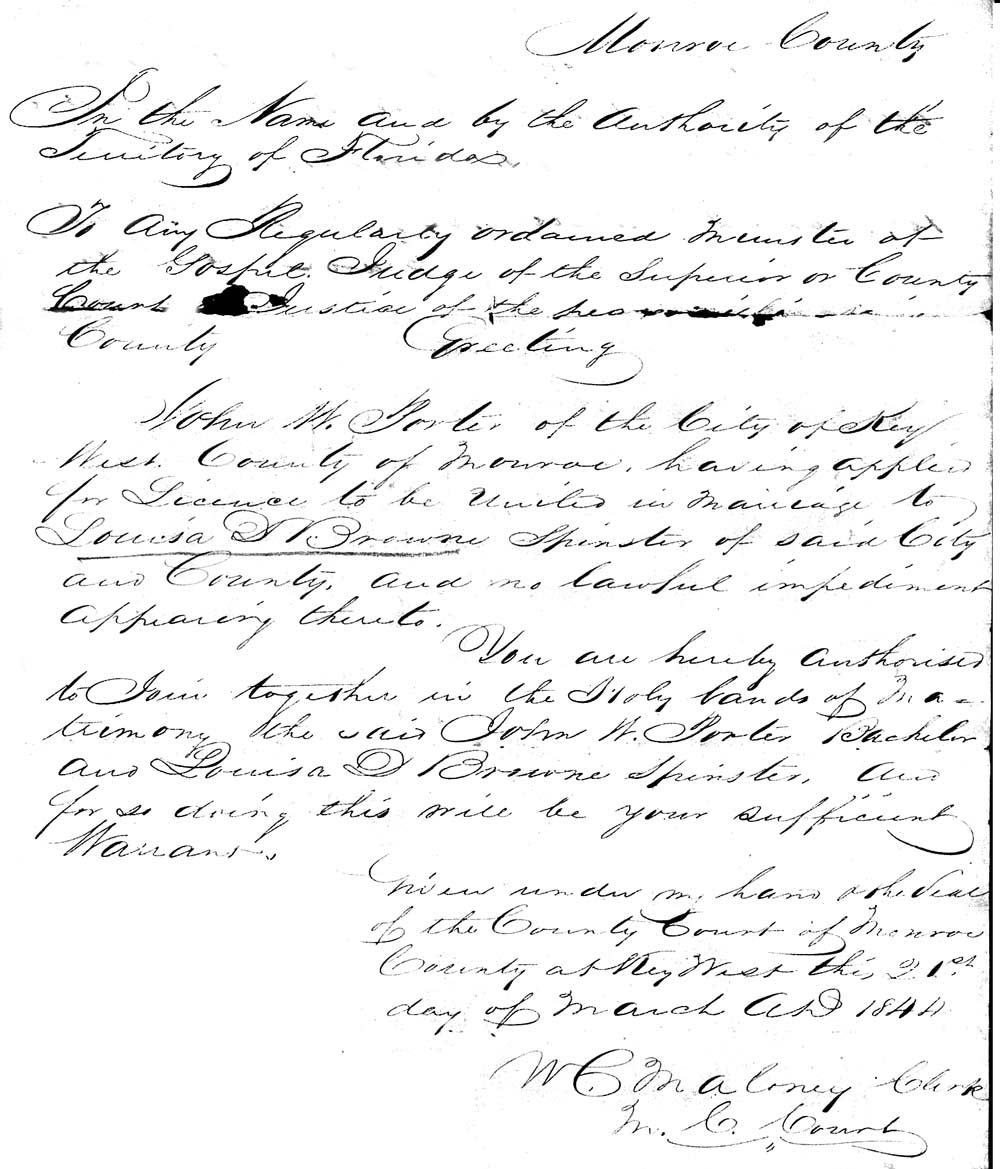 Monroe County
In the Name and by the Authority of the
Territory of Florida.
To Any Regularly ordained Minister of
the Gospel. Judge of the Superior or County
Court Justice of the
County Greeting
John W. Porter of the City of Key
West. County of Monroe, having applied
for Licence to be United in Marriage to
Louisa D Browne Spinster of said City
and County, and no lawful impediment
appearing thereto.
You are hereby authorised
to Join together in the Holy bands of Ma-
trimony the said John W. Porter Bachelor
and Louisa D Browne Spinster, and
for so doing this will be your sufficient
Warrant.
Given under my hand & the Seal
of the County Court of Monroe
County at Key West this 21st
day of March AD 1844
W C Maloney Clerk
M. C. Court